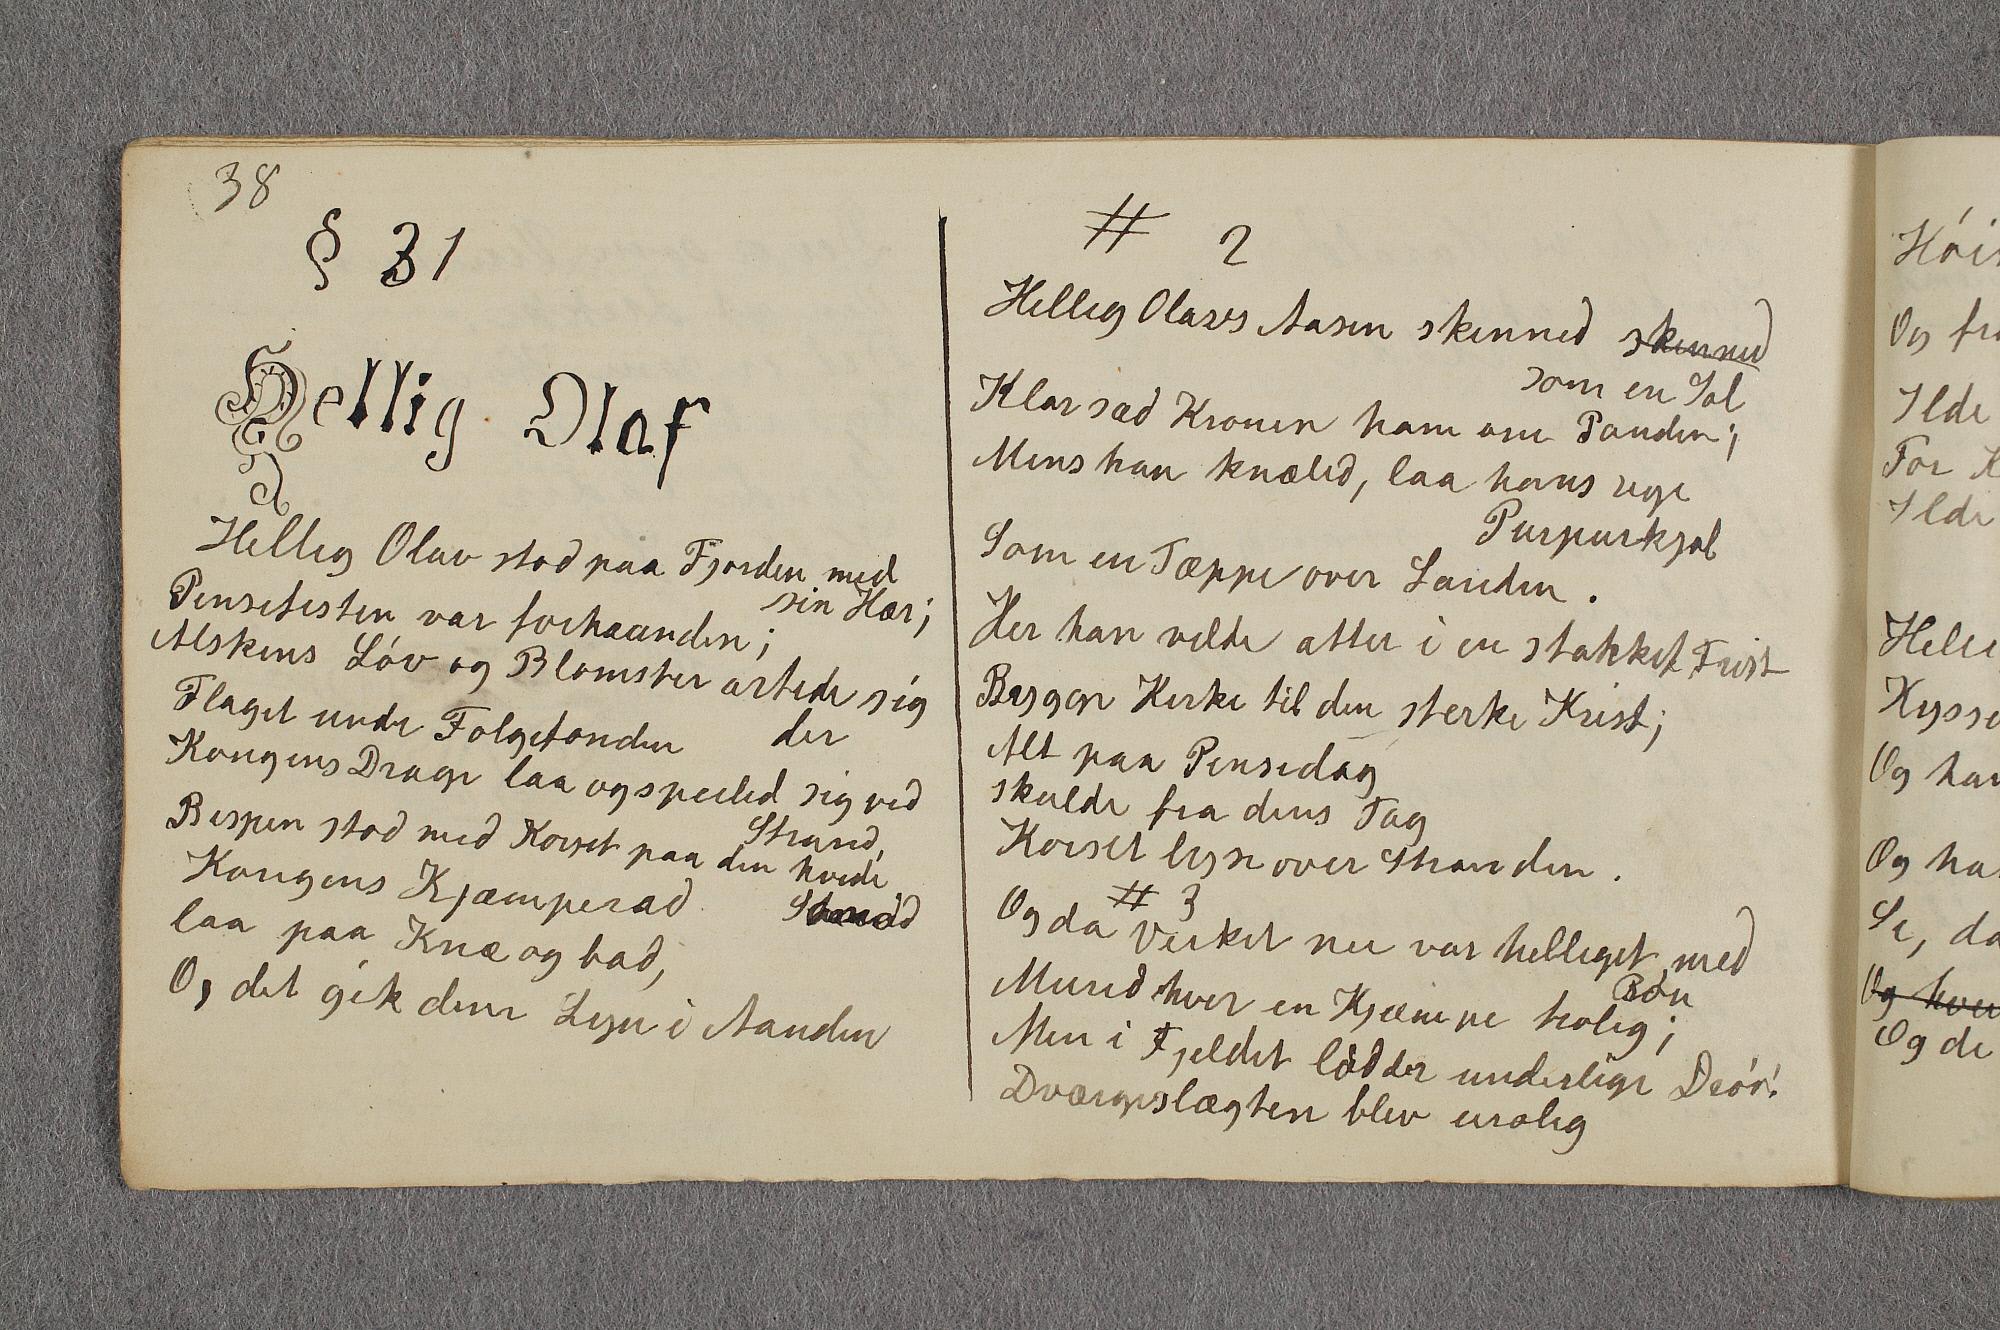 38
§ 31
Hellig Olaf
Hellig Olav stod paa Fjorden med
sin Hær;
Pinsefesten var forhaanden;
Alskens Løv og Blomster artede sig
der
Flaget unde Folgefonden
Kongens Drage laa og speiled sig ved
Strand,
Bispen stod med Korset paa den hvide
Sand
Kongens Kjæmperad
laa paa Knæ og bad,
Og det gik dem Lyn i Aanden
# 2
Hellig Olavs Aasyn skinned skinned
som en Sol
Klar sad Kronen ham om Panden;
Mens han knæled, laa hans rige
Purpurkjol
Som en Tæppe over Sanden.
Her han vilde atter i en stakket Frist
Bygge Kirke til den sterke Krist;
Alt paa Pinsedag
skulde fra dens Tag
Korset lyse over Stranden.
# 3
Og da Verket nu var helliget med
Bøn
Mured hver en Kjæmpe trolig;
Men i Fjeldet lød der underlige Drøn!
Dværgeslægten blev urolig
Og fra
Ilde
For K
Ilde
Og har
Og ha
Se, da
Og hver
Og de